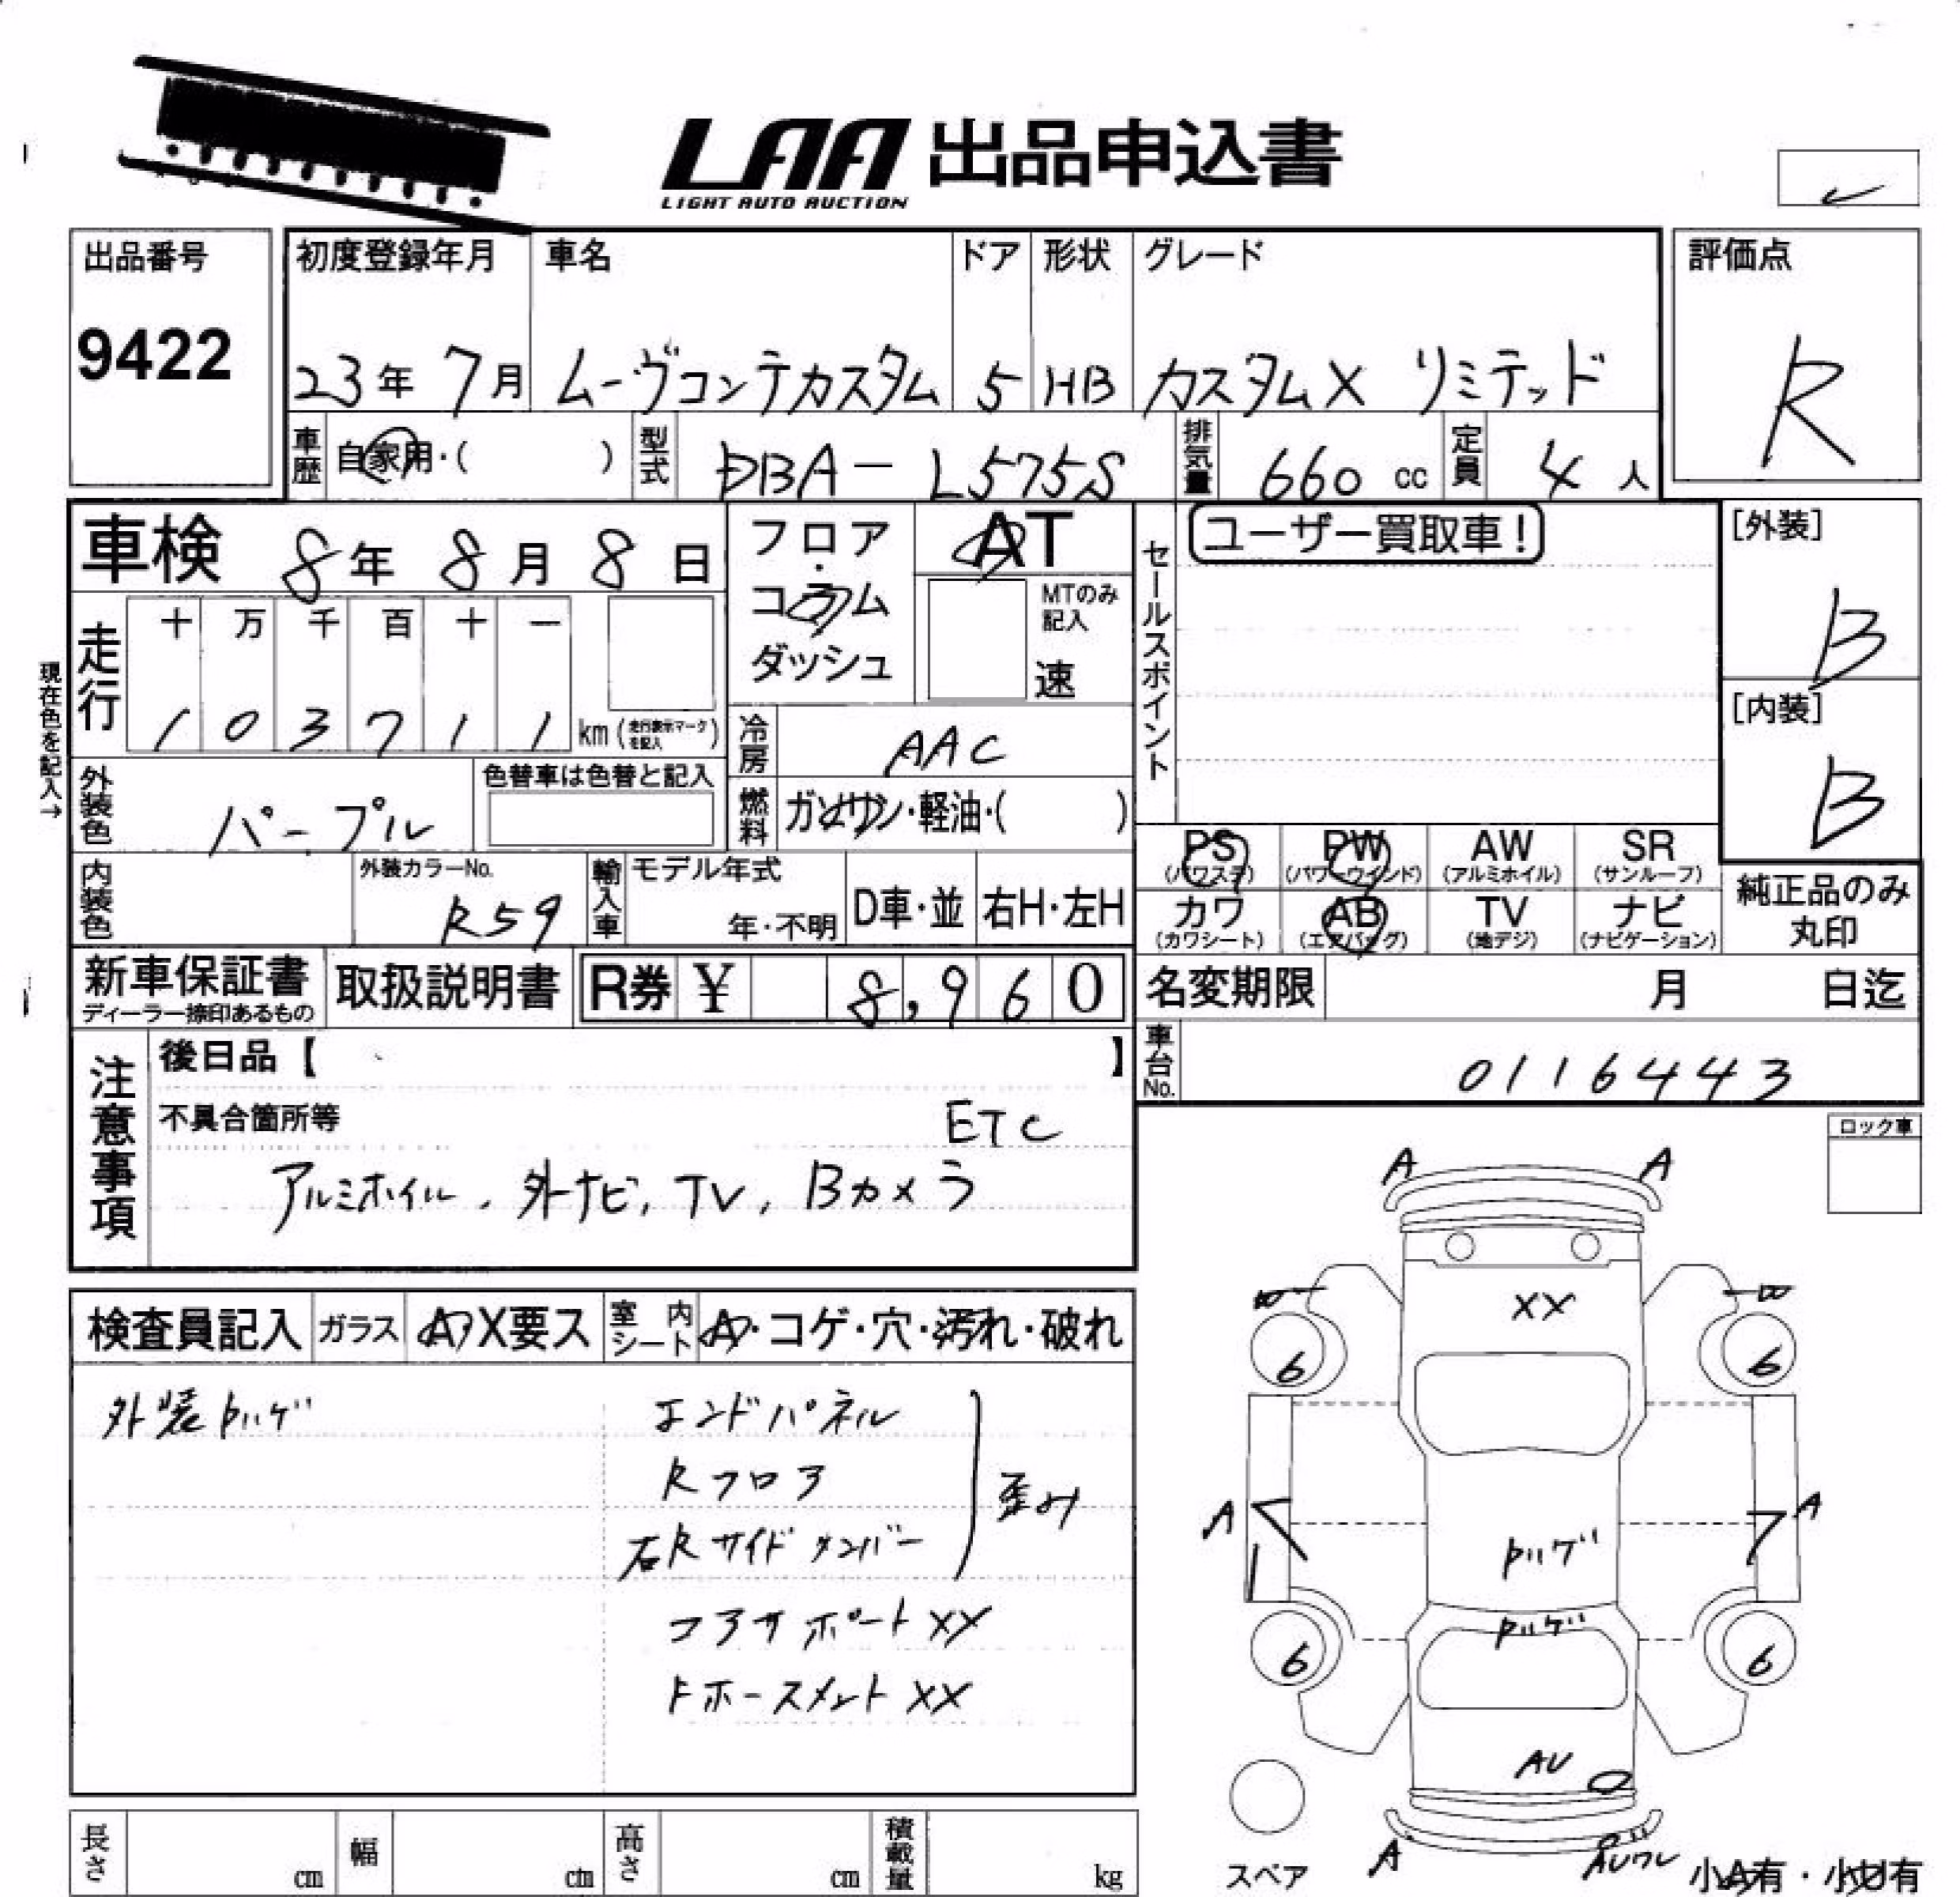 LAA 出品申込書
LIGHT AUTO AUCTION
出品番号
9422
初度登録年月 車名 ドア 形状 グレード
23年 7月 ムーヴコンテカスタム 5 HB カスタムX リミテッド
評価点
R
車歴 自家用・( ) 型式 DBA-L575S 排気量 660 cc 定員 4 人
車検 8年 8月 8日
フロア・コラム ダッシュ
AT
MTのみ記入
速
セールスポイント
ユーザー買取車!
[外装]
B
[内装]
B
現在色を記入→
走行 十 万 千 百 十 一
1 0 3 7 1 1 km (走行表示マークを記入)
冷房 AAC
外装色 パープル
色替車は色替と記入
燃料 ガソリン・軽油・( )
内装色
外装カラーNo.
R59
輸入車 モデル年式
年・不明
D車・並 右H・左H
PS (パワステ) PW (パワーウインド) AW (アルミホイル) SR (サンルーフ)
カワ (カワシート) AB (エアバッグ) TV (地デジ) ナビ (ナビゲーション)
純正品のみ
丸印
新車保証書
ディーラー捺印あるもの
取扱説明書
R券 ¥ 8,960
名変期限 月 日迄
車台No. 0116443
注意事項
後日品【 】
不具合箇所等
ETC
アルミホイル、外ナビ, TV, Bカメラ
ロック車
検査員記入 ガラス A・X要ス 室内シート A・コゲ・穴・汚れ・破れ
外装トハゲ
エンドパネル
Rフロア
右Rサイドメンバー
歪み
コアサポートXX
ドホースメントXX
A A
W W
XX
6 6
A A
トハゲ
トハゲ
6 6
AU
A
スペア
小A有・小U有
長さ cm 幅 cm 高さ cm 積載量 kg